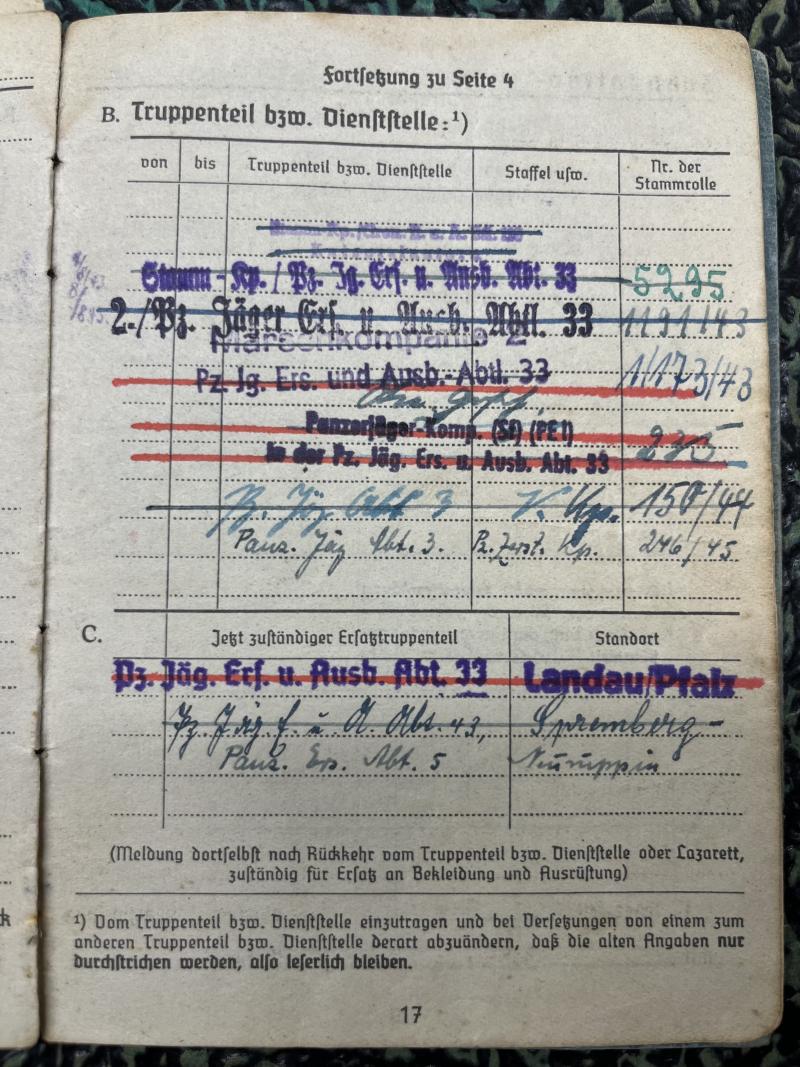 Fortsetzung zu Seite 4
B. Truppenteil bzw. Dienststelle:¹)
von bis Truppenteil bzw. Dienststelle Staffel usw. Nr. der Stammrolle
Stamm-Kp./Pz. Jg. Ers. u. Ausb. Abt. 33 5295
2./Pz. Jäger Ers. u. Ausb. Abtl. 33 1191/43
Marschkompanie 2
Pz. Jg. Ers. und Ausb.-Abtl. 33 1/173/43
Panzerjäger-Komp. (Sf) (PE1) 235
in der Pz. Jäg. Ers. u. Ausb. Abt. 33
Pz. Jäg. Abt 3 V. Kp. 150/44
Panz. Jäg Abt. 3. Pz. Zerst. Kp. 246/45
C. Jetzt zuständiger Ersatztruppenteil Standort
Pz. Jäg. Ers. u. Ausb. Abt. 33 Landau/Pfalz
Pz. Jäg E. u. A. Abt. 43, Spremberg-
Panz. Ers. Abt. 5 Neuruppin
(Meldung dortselbst nach Rückkehr vom Truppenteil bzw. Dienststelle oder Lazarett,
zuständig für Ersatz an Bekleidung und Ausrüstung)
¹) Vom Truppenteil bzw. Dienststelle einzutragen und bei Versetzungen von einem zum
anderen Truppenteil bzw. Dienststelle derart abzuändern, daß die alten Angaben nur
durchstrichen werden, also leserlich bleiben.
17